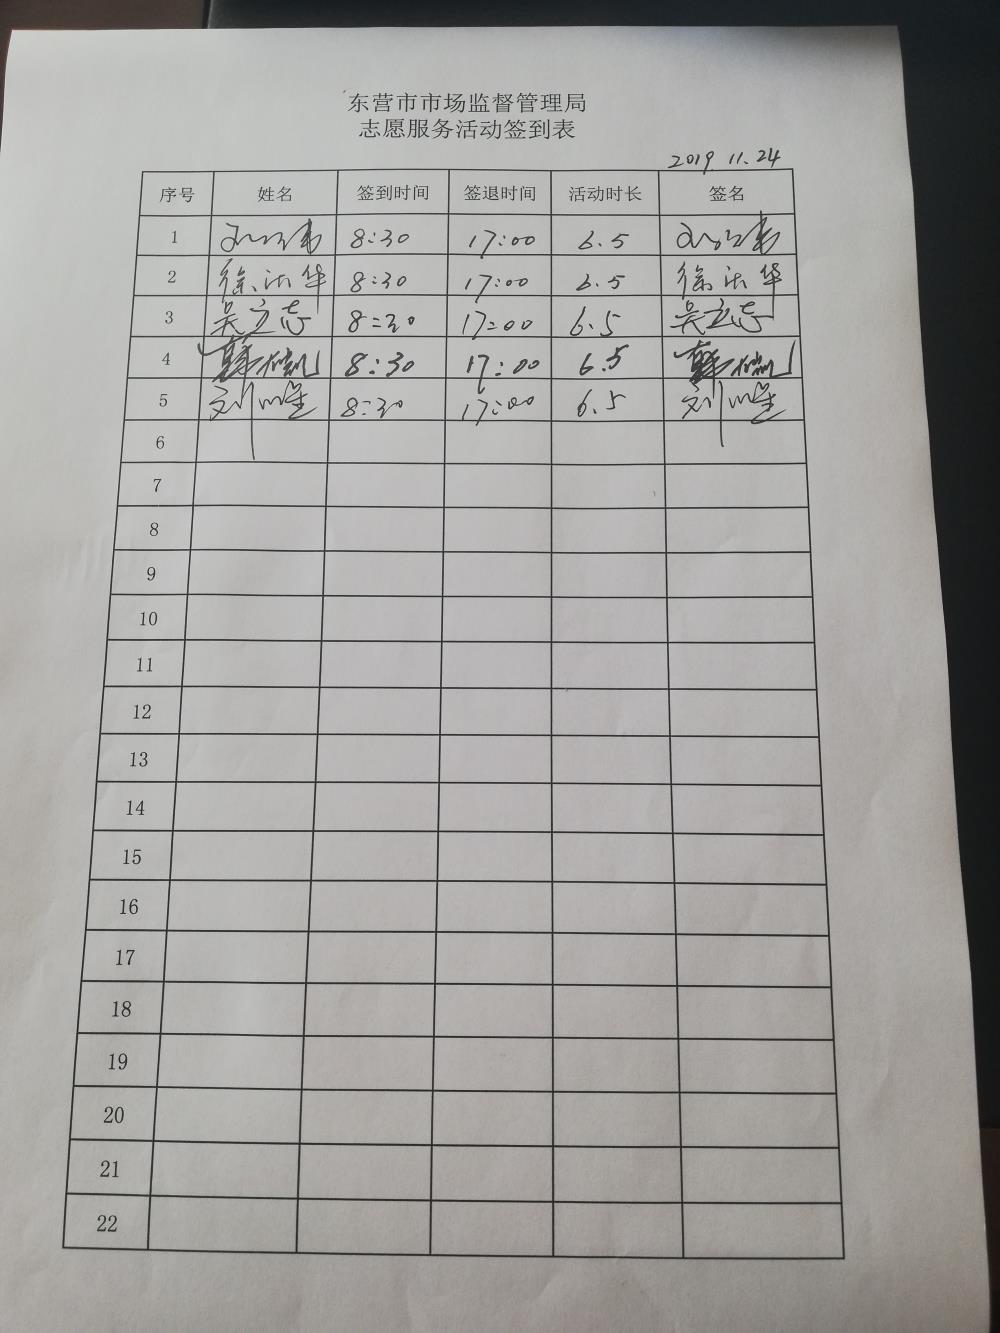 东营市市场监督管理局
志愿服务活动签到表
2019.11.24
序号 姓名 签到时间 签退时间 活动时长 签名
1 8:30 17:00 6.5
2 徐洪华 8:30 17:00 6.5 徐洪华
3 吴立志 8:30 17:00 6.5 吴立志
4 8:30 17:00 6.5
5 刘 8:30 17:00 6.5 刘
6
7
8
9
10
11
12
13
14
15
16
17
18
19
20
21
22